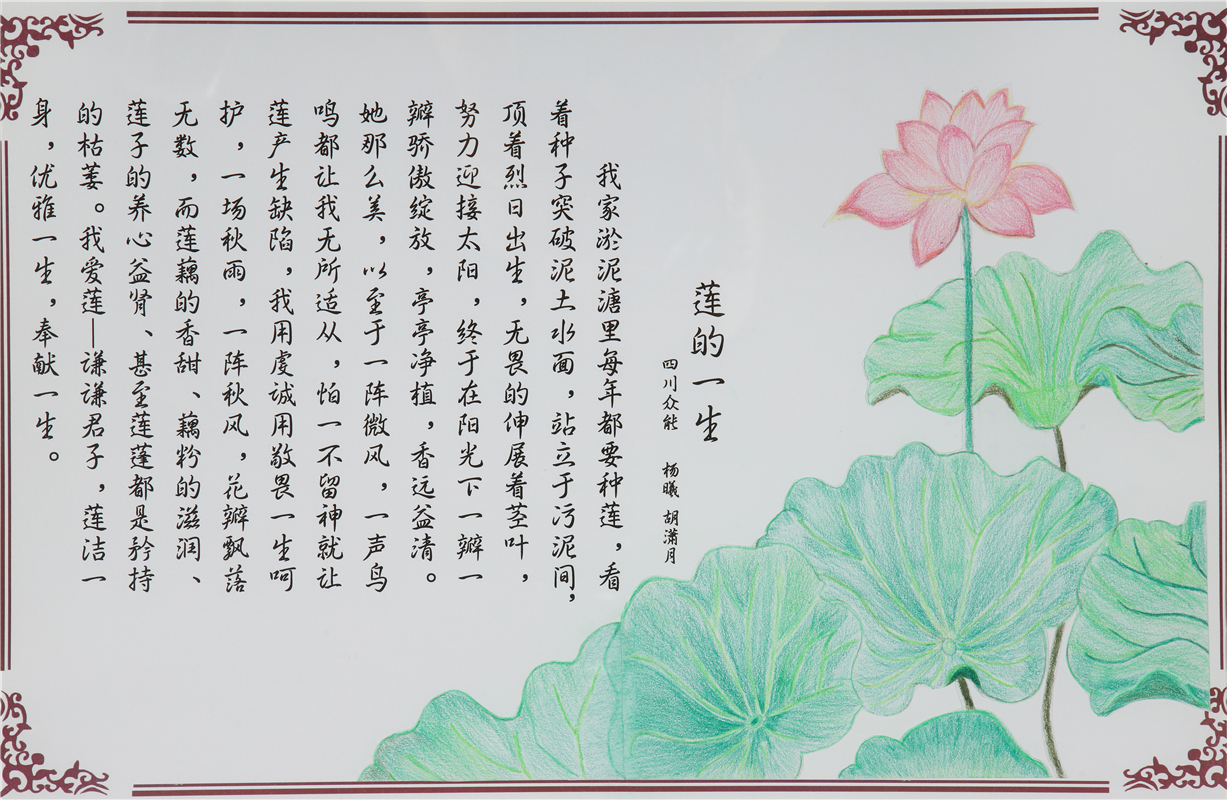 莲的一生
四川众能 杨曦 胡潇月
我家淤泥溏里每年都要种莲，看
着种子突破泥土水面，站立于污泥间，
顶着烈日出生，无畏的伸展着茎叶，
努力迎接太阳，终于在阳光下一瓣一
瓣骄傲绽放，亭亭净植，香远益清。
她那么美，以至于一阵微风，一声鸟
鸣都让我无所适从，怕一不留神就让
莲产生缺陷，我用虔诚用敬畏一生呵
护，一场秋雨，一阵秋风，花瓣飘落
无数，而莲藕的香甜、藕粉的滋润、
莲子的养心益肾、甚至莲蓬都是矜持
的枯萎。我爱莲—谦谦君子，莲洁一
身，优雅一生，奉献一生。